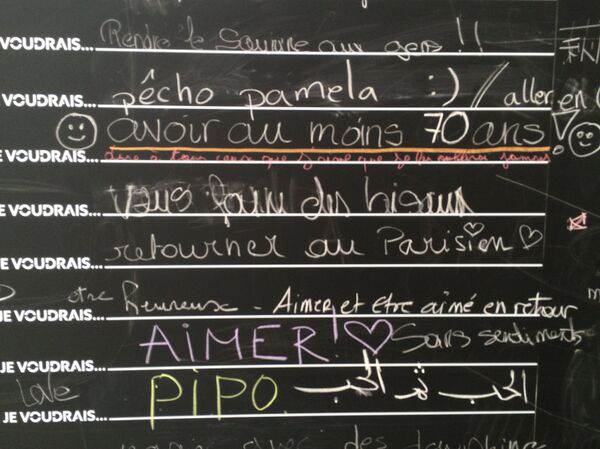 VOUDRAIS... Rendre le sourire aux gens !!
VOUDRAIS... pêcho pamela :) / aller en
VOUDRAIS... avoir au moins 70 ans!
E VOUDRAIS... dire à tous ceux que j'aime que je les
E VOUDRAIS... vous faire des bisous
E VOUDRAIS... retourner au Parisien
JE VOUDRAIS... être heureuse - Aimer et être aimé en retour
JE VOUDRAIS... AiMER! Sans sentiments
Love
JE VOUDRAIS... PiPO الحب ثم الحب
avec des dauphins